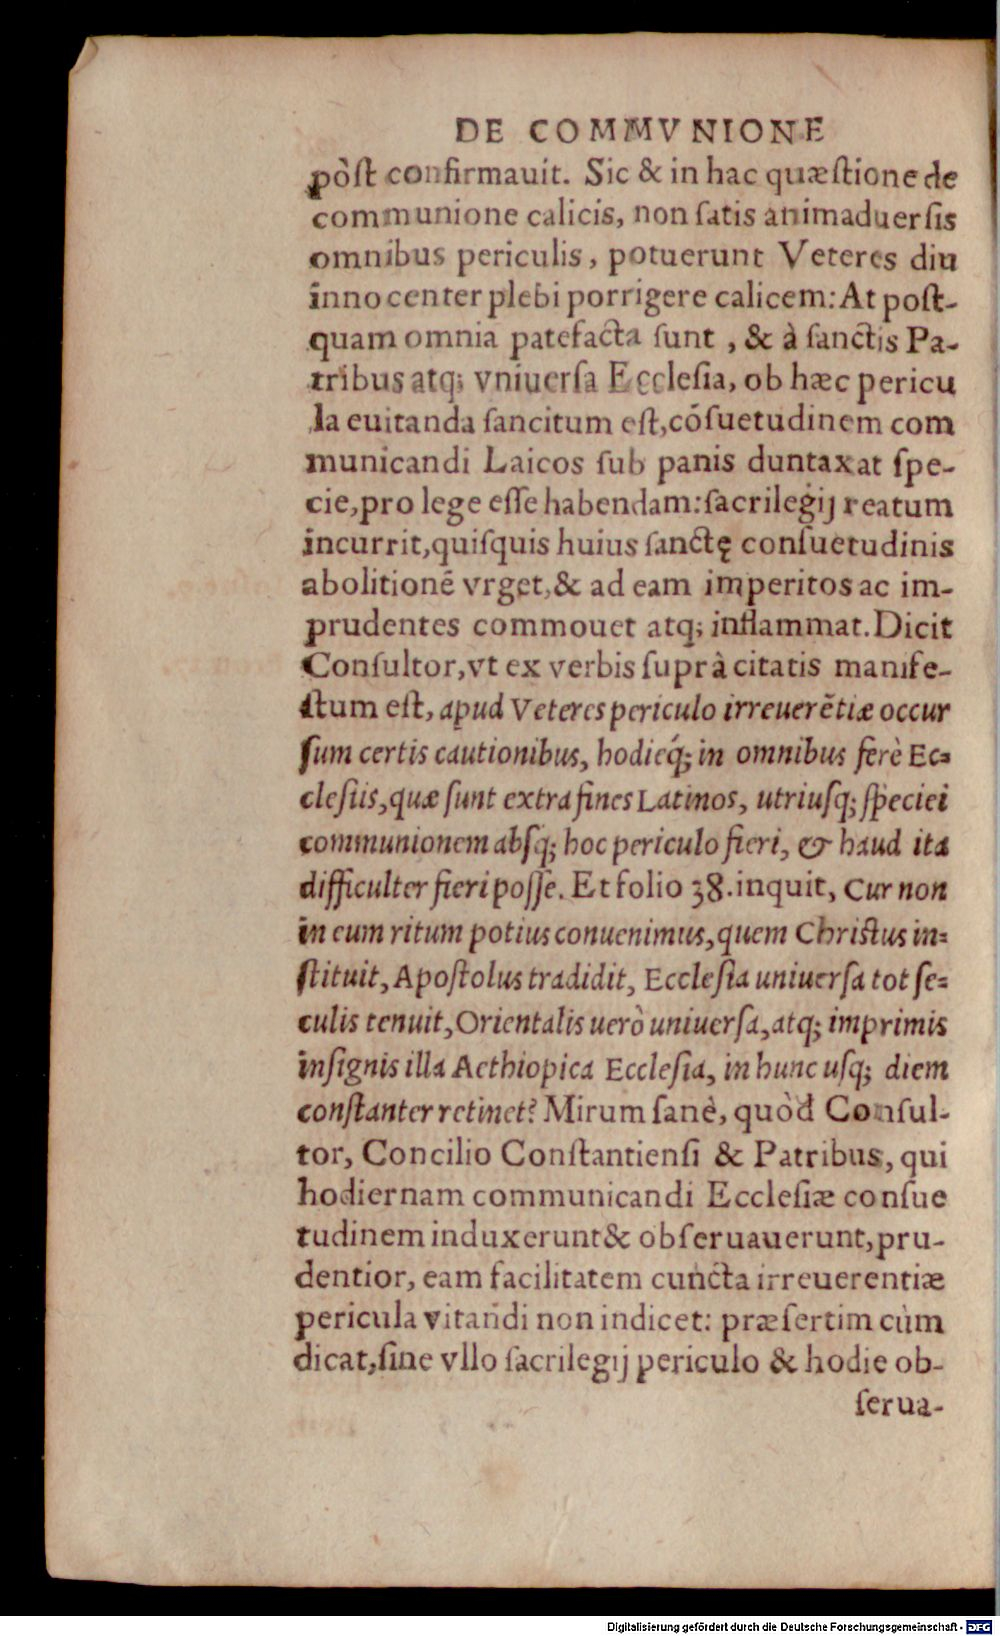 DE COMMVNIONE
pòſt confirmauit. Sic & in hac quæſtione de
communione calicis, non ſatis animaduerſis
omnibus periculis, potuerunt Veteres diu
innocenter plebi porrigere calicem: At poſt-
quam omnia patefacta ſunt, & à ſanctis Pa-
tribus atq; vniuerſa Eccleſia, ob hæc pericu
la euitanda ſancitum eſt, cōſuetudinem com
municandi Laicos ſub panis duntaxat ſpe-
cie, pro lege eſſe habendam: ſacrilegij reatum
incurrit, quiſquis huius ſanctę conſuetudinis
abolitionē vrget, & ad eam imperitos ac im-
prudentes commouet atq; inflammat. Dicit
Conſultor, vt ex verbis ſuprà citatis manife-
ſtum eſt, apud Veteres periculo irreuerētiæ occur
ſum certis cautionibus, hodieq́; in omnibus ferè Ec-
cleſiis, quæ ſunt extra fines Latinos, utriuſq; ſpeciei
communionem abſq; hoc periculo fieri, & haud ita
difficulter fieri poſſe. Et folio 38. inquit, Cur non
in eum ritum potius conuenimus, quem Chriſtus in-
ſtituit, Apoſtolus tradidit, Eccleſia uniuerſa tot ſe-
culis tenuit, Orientalis uerò uniuerſa, atq; imprimis
inſignis illa Aethiopica Eccleſia, in hunc uſq; diem
conſtanter retinet? Mirum ſanè, quòd Conſul-
tor, Concilio Conſtantienſi & Patribus, qui
hodiernam communicandi Eccleſiæ conſue
tudinem induxerunt & obſeruauerunt, pru-
dentior, eam facilitatem cuncta irreuerentiæ
pericula vitandi non indicet: præſertim cùm
dicat, ſine vllo ſacrilegij periculo & hodie ob-
ſerua-
Digitalisierung gefördert durch die Deutsche Forschungsgemeinschaft - DFG